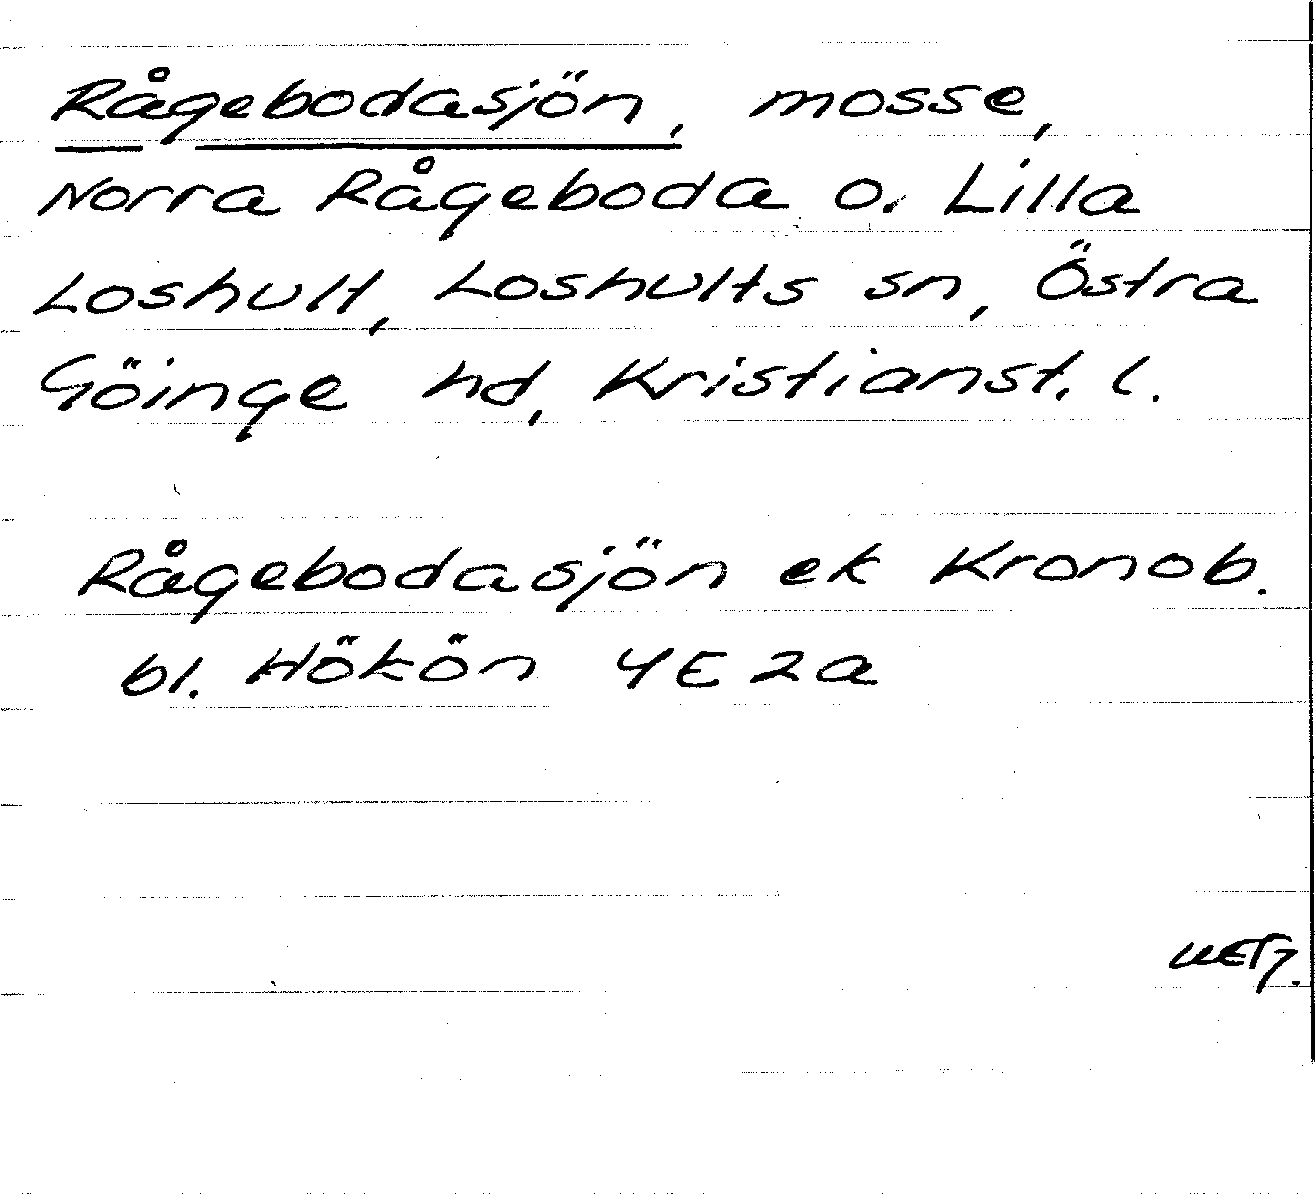 Rågebodasjön, mosse,
Norra Rågeboda o. Lilla
Loshult, Loshults sn, Östra
Göinge hd, Kristianst. l.
Rågebodasjön ek Kronob.
bl. Hökön 4E2a